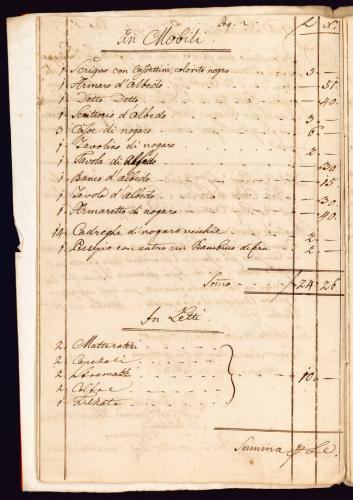 Pag. 2.
In Mobili.
£ N.
1 Scrigno con Cassettini, colorito negro 3 —
1 Armaro d'albedo — 51
1 Detto Detto — 40
1 Scrittorio d'Albedo 3 —
3 Casse di nogaro 6 —
1 Tavolino di nogaro 2 —
1 Tavola di albedo — 30
1 Banco d'albedo — 15
1 Tavola d'albedo — 30
1 Armaretto di nogaro — 40
14 Cadreghe di nogaro vecchie 2 —
1 Presepio con entro un Bambino di 2 —
Somo 24 26
In Letti
2 Matterazzi
2 Capezali
2 Stramazzi
2 Coltre
1 Filzata
10 —
Summa